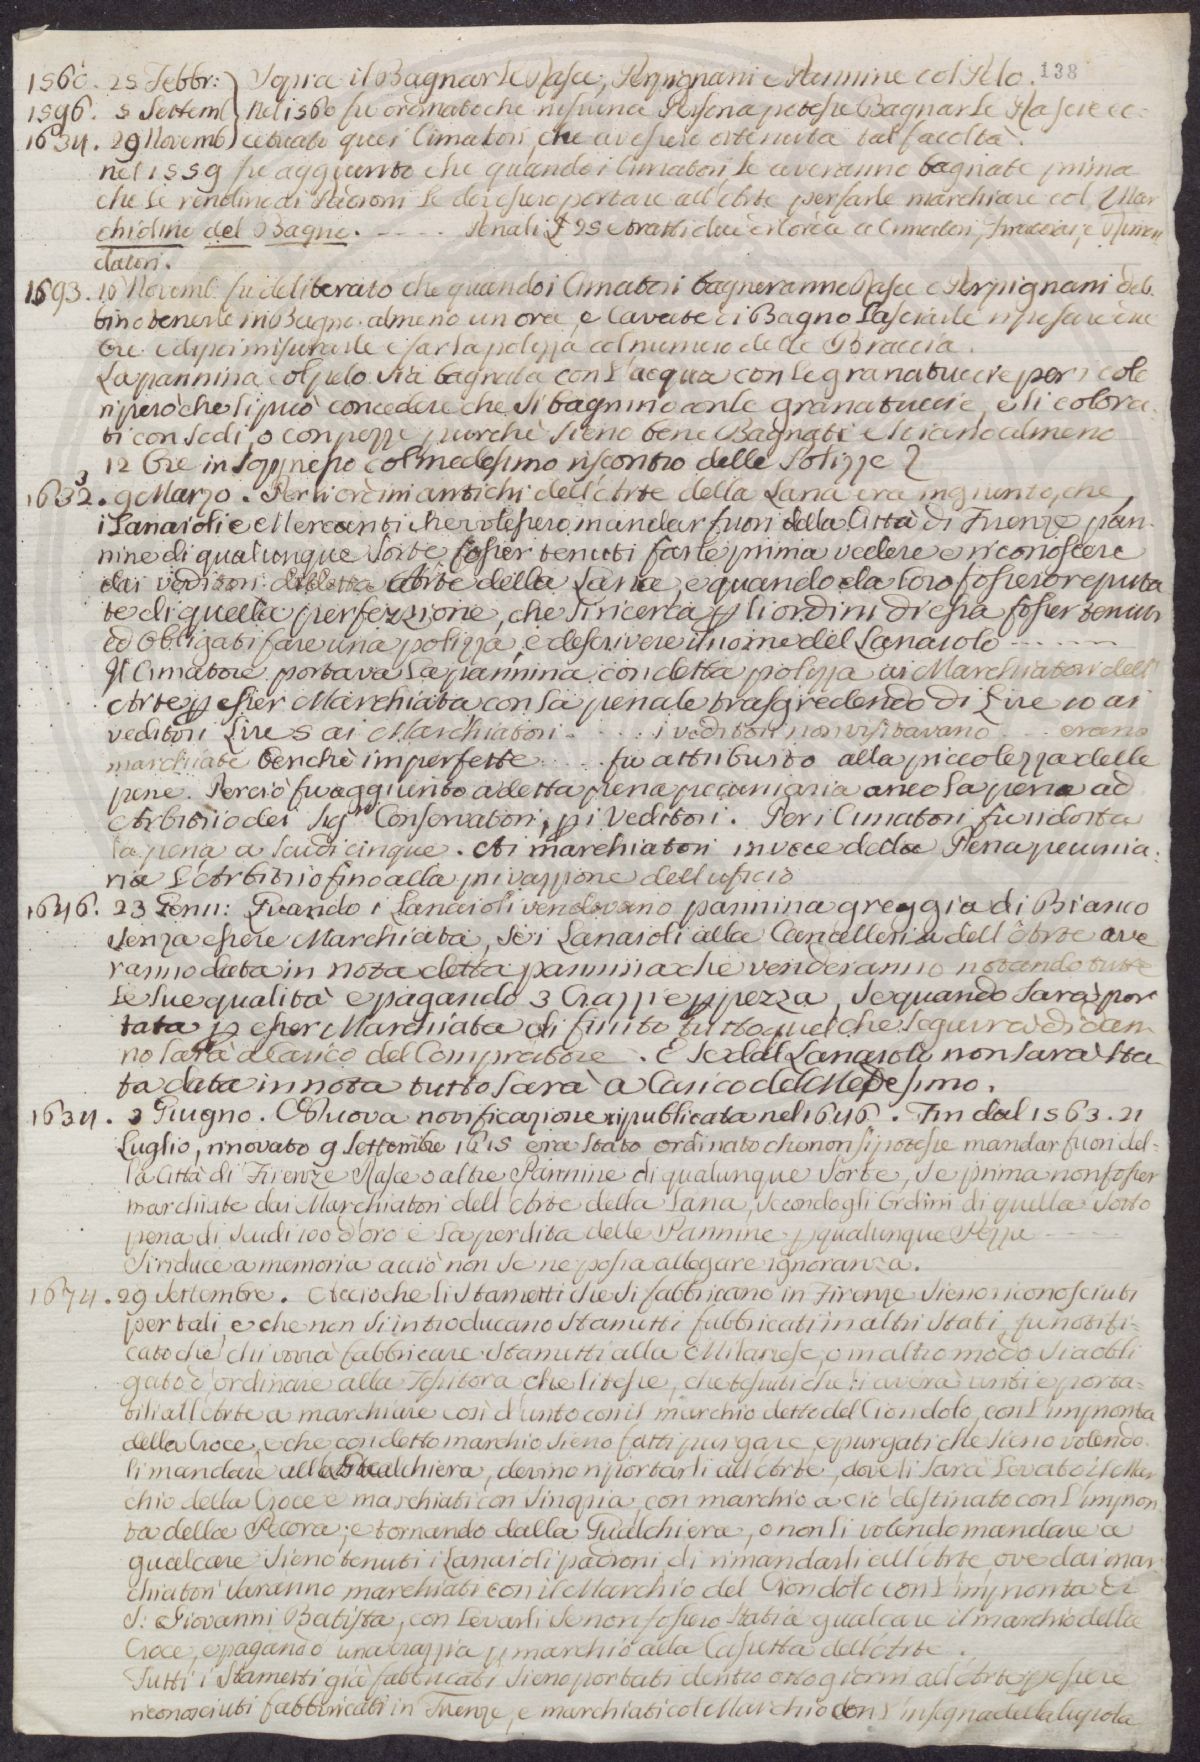 138
1560. 25 Febbr: Sopra il Bagnar le Rasce, Perpignani e Pannine col Pelo.
1596. 5 Settemb Nel 1560 fu ordinato che nissuna Persona potesse Bagnar le Rascie ec:
1634. 29 Novemb eccettuato quei Cimatori, che avessero ottenuta tal facoltà.
nel 1559 fu aggiunto che quando i Cimatori le averanno bagnate prima
che le rendino ai Padroni le dovessero portare all'Arte per farle marchiare col Mar
chiolino del Bagno. - - - - Penali £ 25 e tratti due di corda a Cimatori,
datori.
1593. 10 Novemb. fu deliberato che quando i Cimatori bagneranno Rasce e Perpignani deb.
bino tenerle in Bagno almeno un ora, e cavate di Bagno lasciarle riposare due
Ore e dipoi misurarle e far la polizza col numero delle Braccia.
La pannina col pelo sia bagnata con l'acqua con le granatuccie per i colo
ri però che si può concedere che si bagnino con le granatuccie, e li colora.
ti con sedi, o con pezze purchè sieno bene Bagnati e stiano almeno
12 Ore in soppresso col medesimo riscontro delle Polizze
1632. 9 Marzo. Per li ordini antichi dell'Arte della Lana era ingiunto, che
i Lanaioli e Mercanti che volessero mandar fuori della Città di Firenze pan-
nine di qualunque Sorte fosser tenuti farle prima vedere e riconoscere
dai veditori di detta Arte della Lana, e quando da loro fossero reputa
te di quella perfezzione, che si ricerca p li ordini di essa fosser tenuti
ed Obligati fare una polizza, e descrivere il nome del Lanaiolo - - - -
Il Cimatore portava la pannina con detta polizza ai Marchiatori dell'
Arte p esser Marchiata con la penale trasgredendo di Lire 10 ai
veditori Lire 5 ai Marchiatori. . . . i veditori non visitavano . . . erano
marchiate benchè imperfette . . . . fu attribuito alla piccolezza delle
pene. Perciò fu aggiunto a detta pena pecuniaria anco la pena ad
Arbitrio dei Sigri Conservatori, p i Veditori. Per i Cimatori fu ridotta
la pena a scudi cinque. Ai marchiatori invece della Pena pecunia.
ria l'Arbitrio fino alla privazzione dell uficio
1646. 23 Genn: Quando i Lanaioli vendevano pannina greggia di Bianco
senza essere Marchiata, se i Lanaioli alla Cancelleria dell'Arte ave
ranno data in nota detta pannina che venderanno notando tutte
le sue qualità e pagando 3 Crazzie p pezza, se quando sarà por
tata p esser Marchiata di finito tutto quel che seguirà di dan
no sarà a Carico del Compratore. E se dal Lanaiolo non sarà sta
ta data in nota tutto sarà a Carico del Medesimo.
1634. 3 Giugno. Nuova notificazione ripublicata nel 1646. Fin dal 1563. 21
Luglio, rinovato 9 Settembre 1615 era stato ordinato che non si potesse mandar fuori del-
la Città di Firenze Rasce o altre Pannine di qualunque Sorte, se prima non fosser
marchiate dai Marchiatori dell'Arte della Lana, secondo gli Ordini di quella sotto
pena di scudi 100 d'oro e la perdita delle Pannine p qualunque Pezza - - - -
Si riduce a memoria acciò non se ne possa allegare ignoranza.
1674. 29 Settembre. Acciochè li Stametti che si fabbricano in Firenze sieno riconosciuti
per tali, e che non si introducano Stametti fabbricati in altri stati, fu notifi-
cato che chi vorrà fabbricare Stametti alla Milanese, o in altro modo sia obli
gato d'ordinare alla Tessitora che li tesse, che tessuti che li averà unti e porta-
tili all'Arte a marchiare così d'unto con il marchio detto del Ciondolo, con l'impronta
della Croce, e che con detto marchio sieno fatti purgare, e purgati che sieno volendo
li mandare alla Gualchiera, devino riportarli all'Arte, dove li sarà levato il Mar
chio della Croce e marchiati con sinopia, con marchio a ciò destinato con l'impron
ta della Pecora; e tornando dalla Gualchiera, o non li volendo mandare a
gualcare sieno tenuti i Lanaioli padroni di rimandarli all'Arte, ove dai mar
chiatori saranno marchiati con il Marchio del Ciondolo con l'impronta di
S. Giovanni Batista, con levarli se non fossero stati a gualcare il marchio della
Croce, e pagando una crazzia p marchio alla Cassetta dell'Arte.
Tutti i Stametti già fabbricati sieno portati dentro otto giorni all'Arte p essere
riconosciuti fabbricati in Firenze, e marchiati col Marchio con l'insegna della